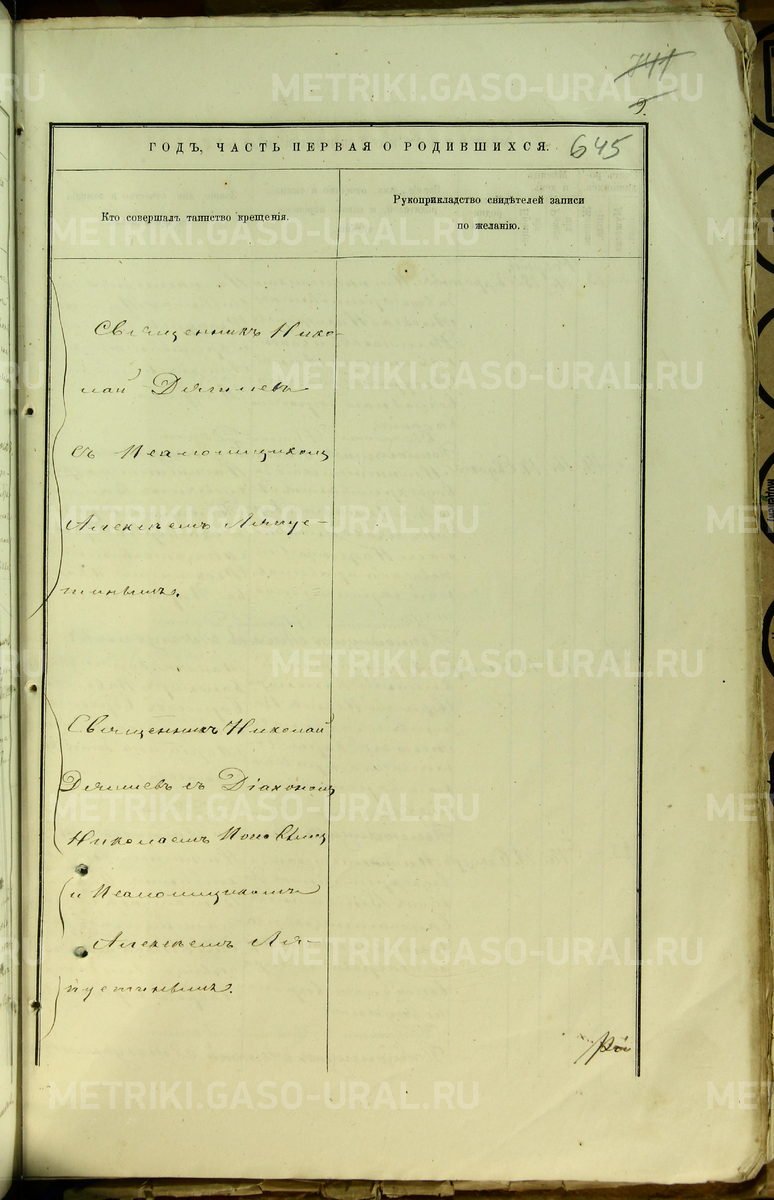 741
9.
ГОДЪ, ЧАСТЬ ПЕРВАЯ О РОДИВШИХСЯ.
645
Кто совершалъ таинство крещенія.
Рукоприкладство свидѣтелей записи
по желанію.
Священникъ Нико-
лай
съ Псаломщикомъ
Алексѣемъ Ляпус-
тинымъ.
Священникъ Николай
съ Діакономъ
Николаемъ Поповымъ
и Псаломщикомъ
Алексѣемъ Ля-
пустинымъ.
METRIKI.GASO-URAL.RU